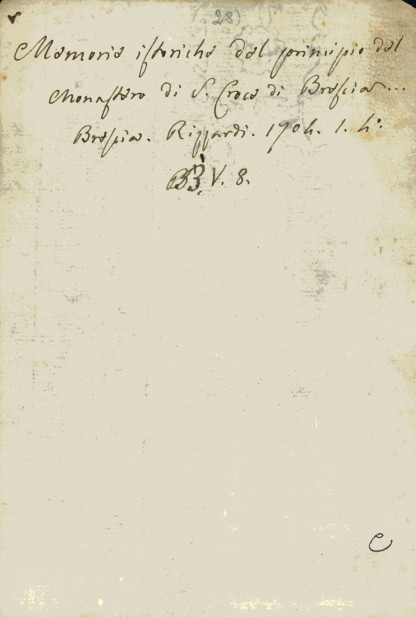 28)
Memorie istoriche del principio del
Monastero di S. Croce di Brescia...
Brescia. Rizzardi. 1704. 1. 4°.
BB. V. 8.
C